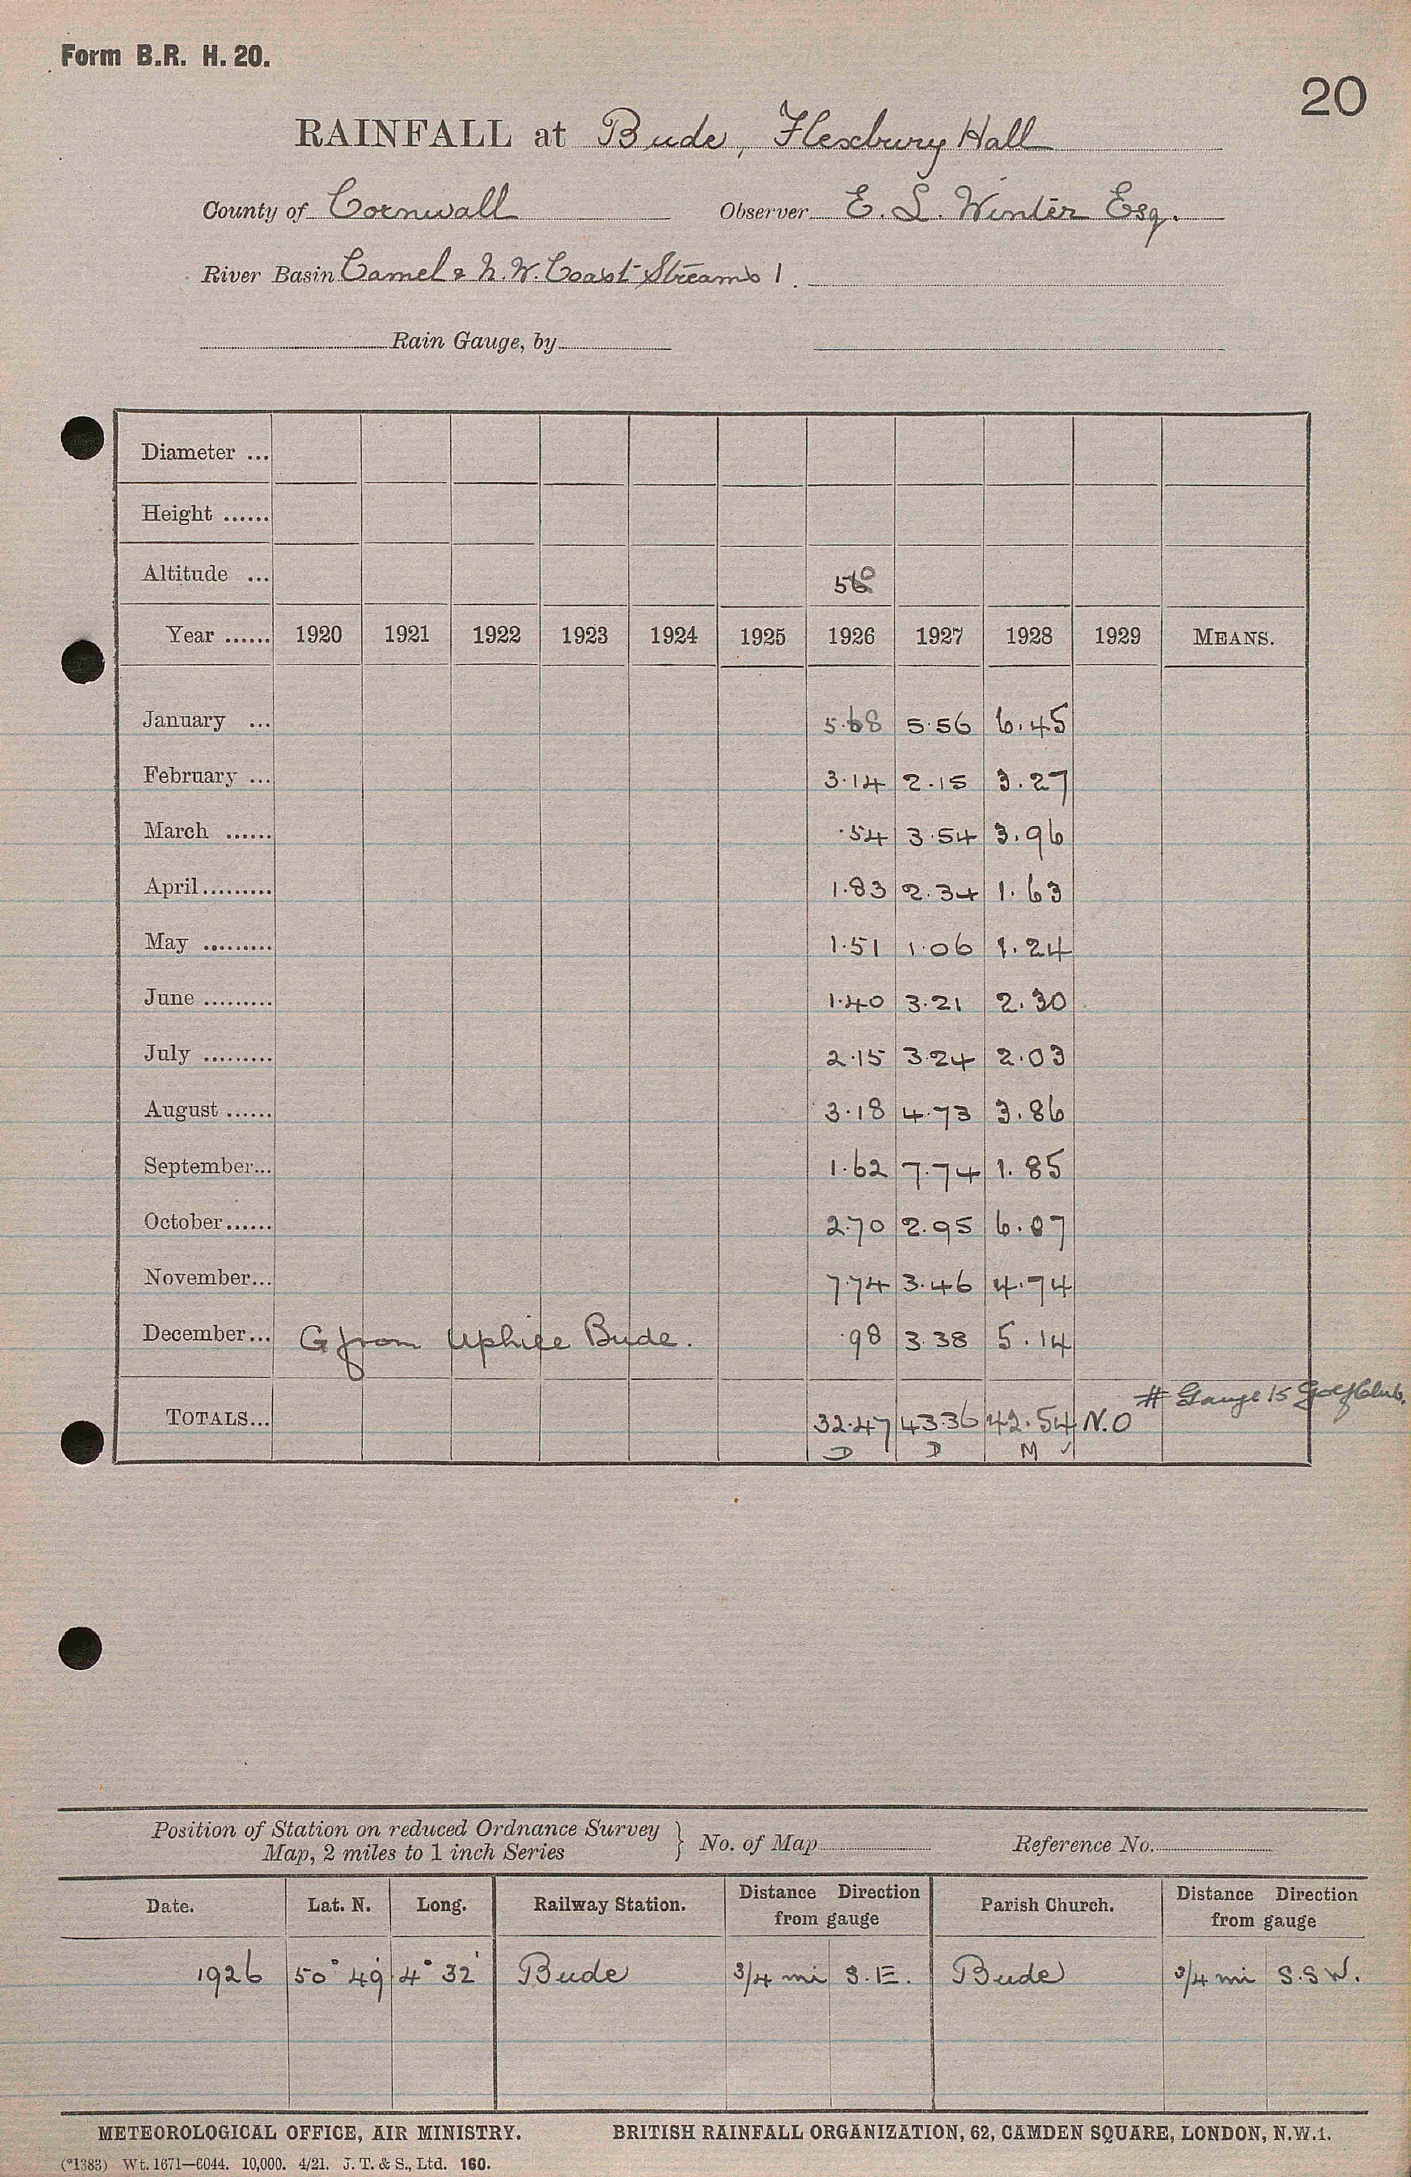 Form B.R. H. 20.
20
RAINFALL at Bude, Flexbury Hall
County of Cornwall Observer E. L. Winter Esq.
River Basin Camel & N.W. Coast Streams 1.
Rain Gauge, by
Diameter ...
Height ......
Altitude ... 50
Year ...... 1920 1921 1922 1923 1924 1925 1926 1927 1928 1929 MEANS.
January ... 5.68 5.56 6.45
February ... 3.14 2.15 3.27
March ...... .54 3.54 3.96
April ......... 1.83 2.34 1.63
May ......... 1.51 1.06 1.24
June ......... 1.40 3.21 2.30
July ......... 2.15 3.24 2.03
August ...... 3.18 4.73 3.86
September... 1.62 7.74 1.85
October ...... 2.70 2.95 6.07
November... 7.74 3.46 4.74
December... G from Uphill Bude. .98 3.38 5.14
# Gauge is Golf Club.
TOTALS... 32.47 43.36 42.54 N.O
D D M ✓
Position of Station on reduced Ordnance Survey
Map, 2 miles to 1 inch Series } No. of Map Reference No.
Date. Lat. N. Long. Railway Station. Distance Direction from gauge Parish Church. Distance Direction from gauge
1926 50° 49' 4° 32' Bude 3/4 mi S.E. Bude 3/4 mi S.S.W.
METEOROLOGICAL OFFICE, AIR MINISTRY. BRITISH RAINFALL ORGANIZATION, 62, CAMDEN SQUARE, LONDON, N.W.1.
(*1383) Wt. 1671—6044. 10,000. 4/21. J. T. & S., Ltd. 160.